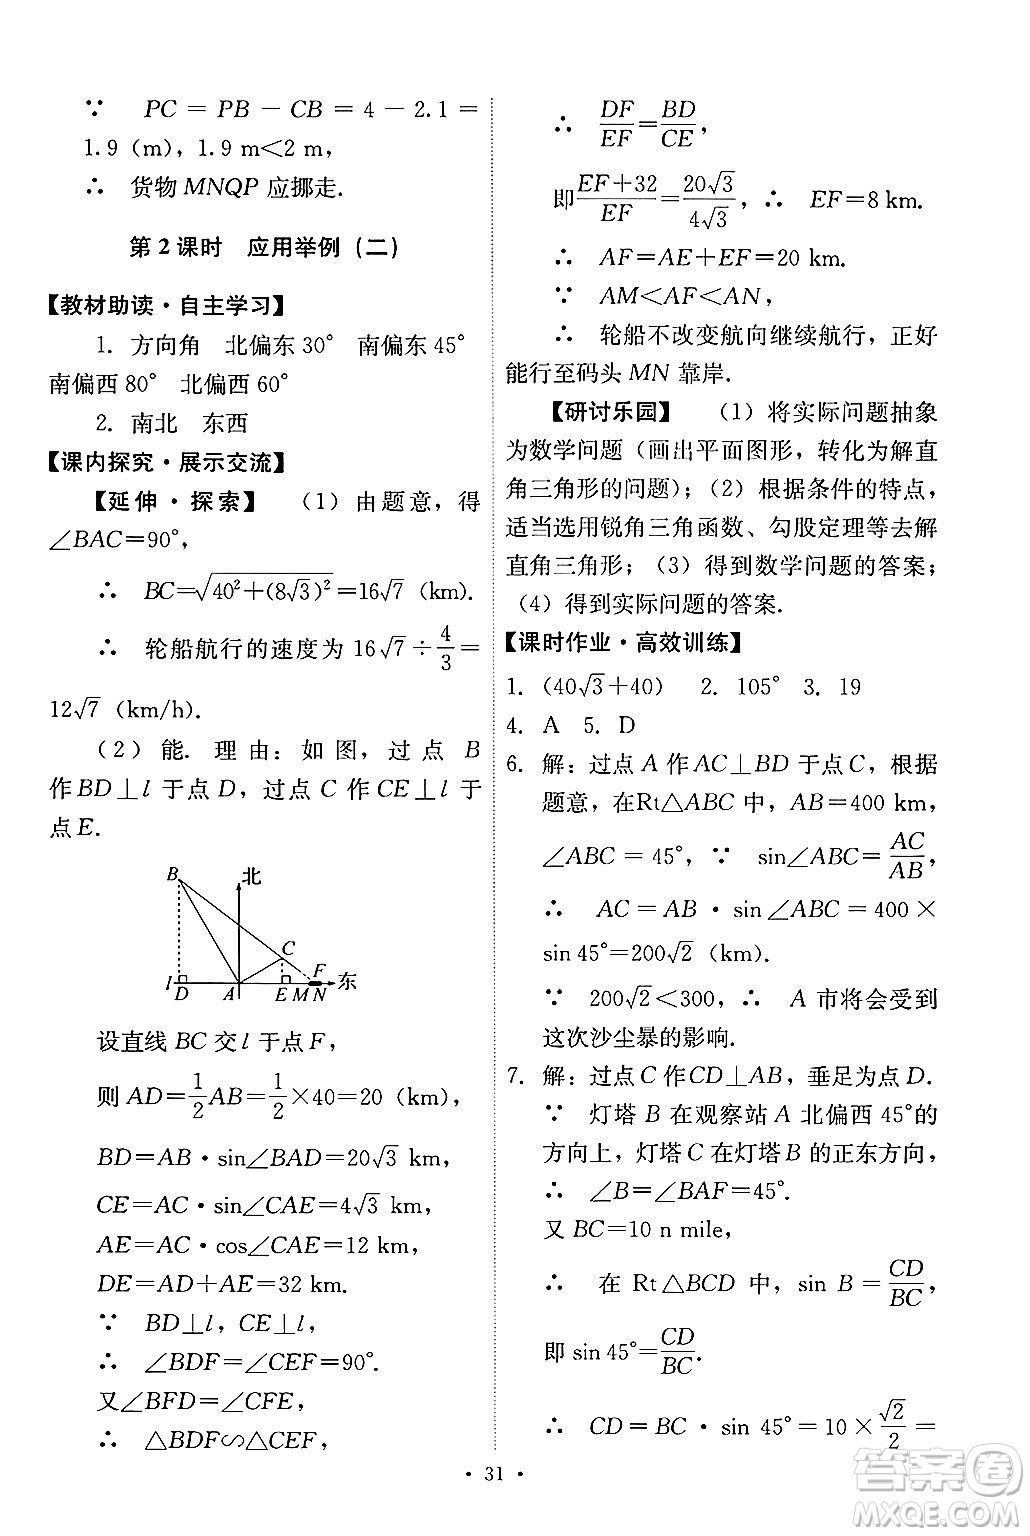 ∵ PC = PB − CB = 4 − 2.1 =
1.9 (m), 1.9 m<2 m,
∴ 货物 MNQP 应挪走.
第 2 课时 应用举例(二)
【教材助读·自主学习】
1. 方向角 北偏东 30° 南偏东 45°
南偏西 80° 北偏西 60°
2. 南北 东西
【课内探究·展示交流】
【延伸·探索】 (1) 由题意,得
∠BAC=90°,
∴ BC=√(40²+(8√3)²)=16√7 (km).
∴ 轮船航行的速度为 16√7÷4/3=
12√7 (km/h).
(2) 能. 理由:如图,过点 B
作BD⊥l于点D,过点C作CE⊥l于
点E.
B 北 C F l D A E M N 东
设直线 BC 交 l 于点 F,
则 AD=1/2AB=1/2×40=20 (km),
BD=AB·sin∠BAD=20√3 km,
CE=AC·sin∠CAE=4√3 km,
AE=AC·cos∠CAE=12 km,
DE=AD+AE=32 km.
∵ BD⊥l,CE⊥l,
∴ ∠BDF=∠CEF=90°.
又∠BFD=∠CFE,
∴ △BDF∽△CEF,
∴ DF/EF=BD/CE,
即(EF+32)/EF=20√3/4√3,∴ EF=8 km.
∴ AF=AE+EF=20 km.
∵ AM<AF<AN,
∴ 轮船不改变航向继续航行,正好
能行至码头 MN 靠岸.
【研讨乐园】 (1) 将实际问题抽象
为数学问题(画出平面图形,转化为解直
角三角形的问题);(2) 根据条件的特点,
适当选用锐角三角函数、勾股定理等去解
直角三角形;(3) 得到数学问题的答案;
(4) 得到实际问题的答案.
【课时作业·高效训练】
1. (40√3+40) 2. 105° 3. 19
4. A 5. D
6. 解:过点 A 作 AC⊥BD 于点 C,根据
题意,在Rt△ABC 中,AB=400 km,
∠ABC = 45°, ∵ sin∠ABC=AC/AB,
∴ AC = AB · sin∠ABC = 400 ×
sin 45°=200√2 (km).
∵ 200√2<300,∴ A 市将会受到
这次沙尘暴的影响.
7. 解:过点 C 作 CD⊥AB,垂足为点 D.
∵ 灯塔 B 在观察站 A 北偏西 45°的
方向上,灯塔 C 在灯塔 B 的正东方向,
∴ ∠B=∠BAF=45°.
又 BC=10 n mile,
∴ 在 Rt△BCD 中,sin B=CD/BC,
即 sin 45°=CD/BC.
∴ CD=BC·sin 45°=10×√2/2=
· 31 ·
答案圈
MXQE.COM